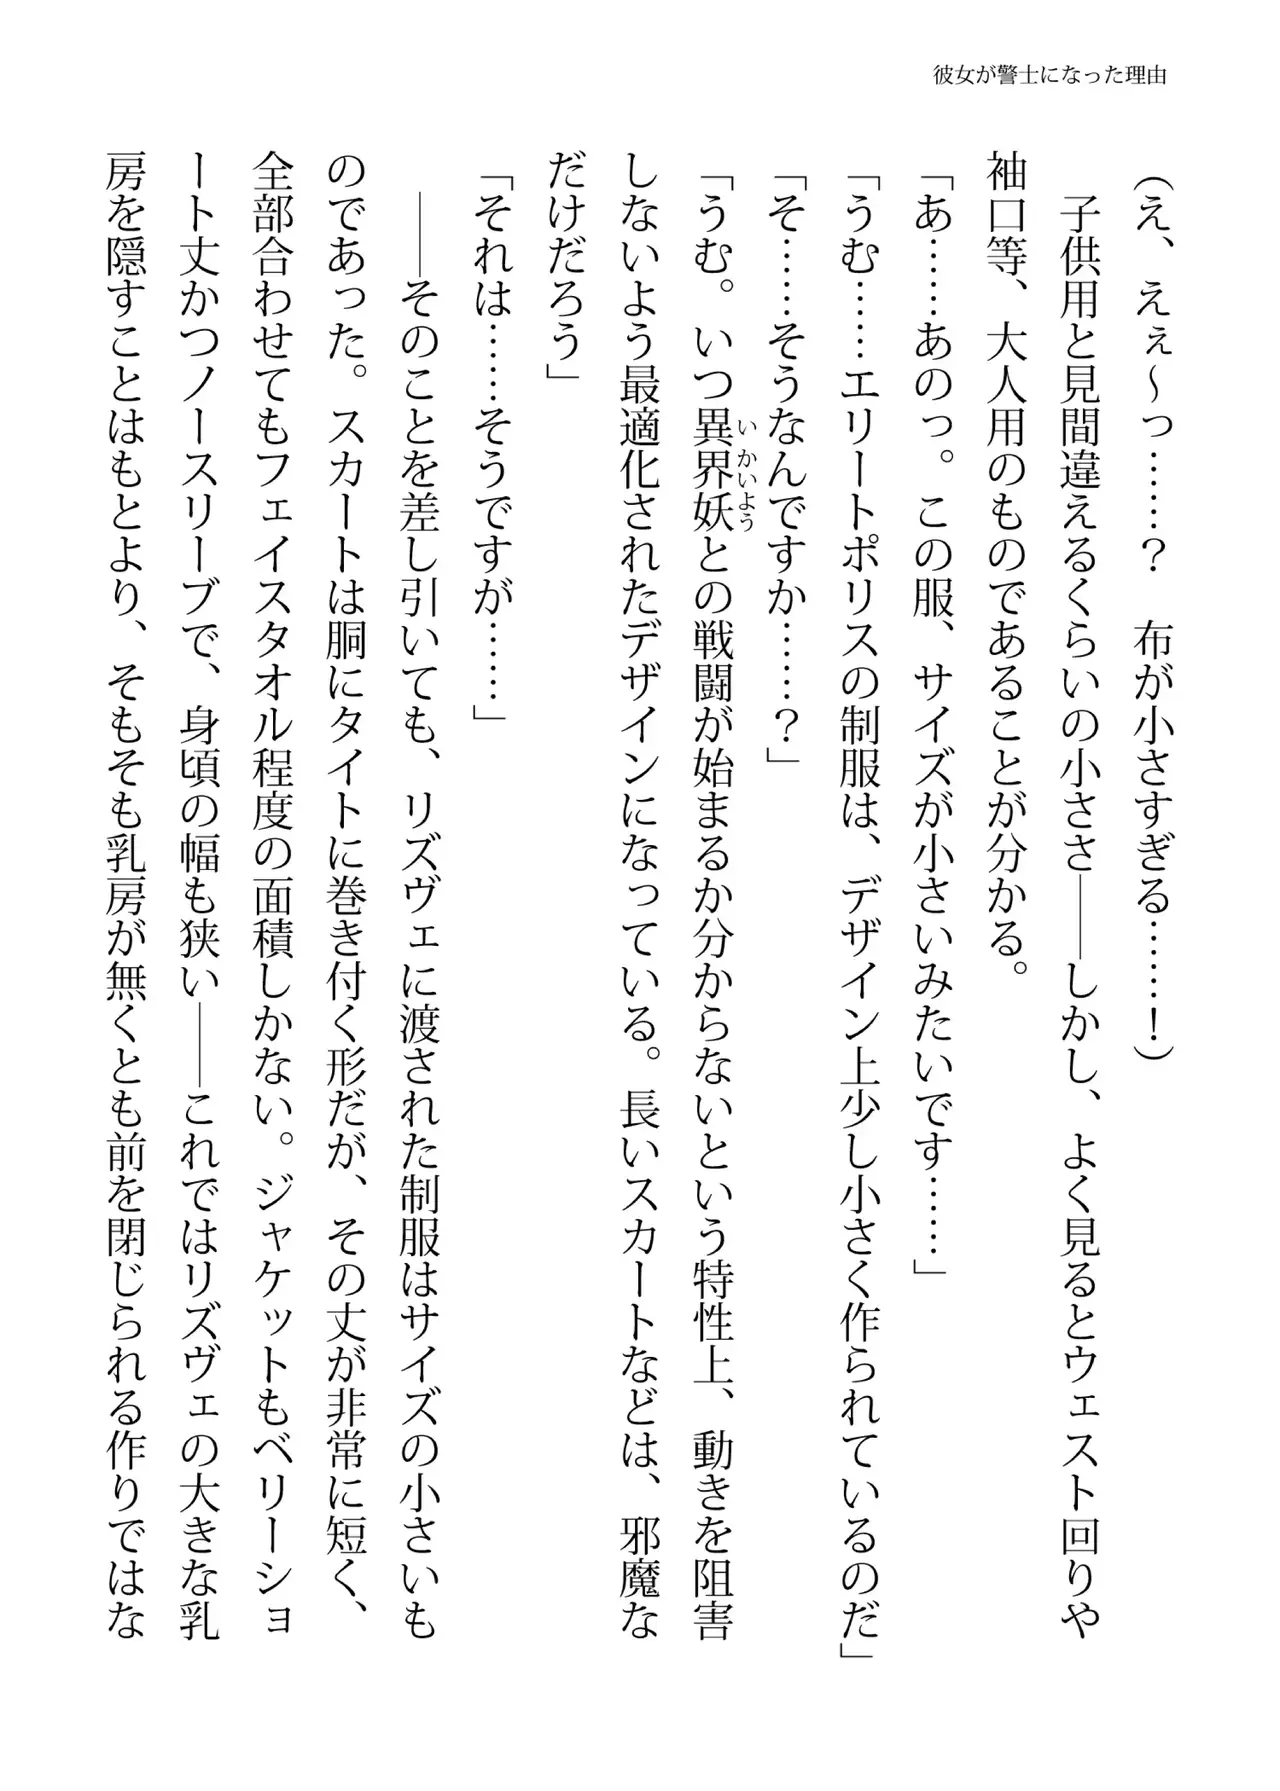 彼女が警士になった理由
(え、えぇ～っ……？　布が小さすぎる……！)
　子供用と見間違えるくらいの小ささ――しかし、よく見るとウェスト回りや
袖口等、大人用のものであることが分かる。
「あ……あのっ。この服、サイズが小さいみたいです……」
「うむ……エリートポリスの制服は、デザイン上少し小さく作られているのだ」
「そ……そうなんですか……？」
「うむ。いつ異界妖との戦闘が始まるか分からないという特性上、動きを阻害
いかいよう
しないよう最適化されたデザインになっている。長いスカートなどは、邪魔な
だけだろう」
「それは……そうですが……」
　――そのことを差し引いても、リズヴェに渡された制服はサイズの小さいも
のであった。スカートは胴にタイトに巻き付く形だが、その丈が非常に短く、
全部合わせてもフェイスタオル程度の面積しかない。ジャケットもベリーショ
ート丈かつノースリーブで、身頃の幅も狭い――これではリズヴェの大きな乳
房を隠すことはもとより、そもそも乳房が無くとも前を閉じられる作りではな